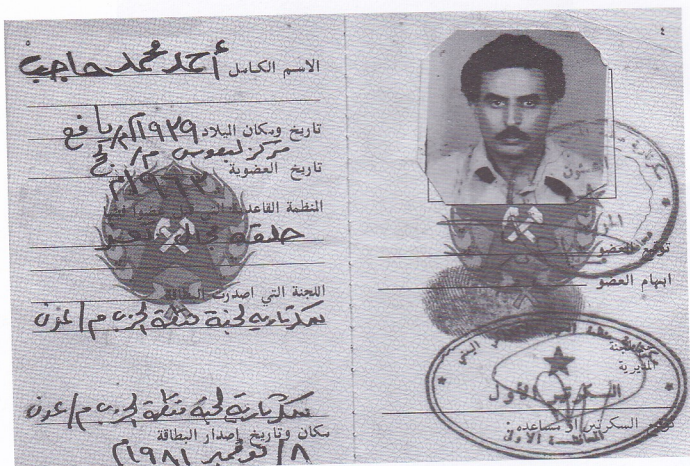 ٤
الاسم الكامل أحمد محمد حاجب
تاريخ ومكان الميلاد ١٩٣٩م/ يافع
مركز لبعوس م/ لحج
تاريخ العضوية
المنظمة القاعدية التي
اللجنة التي اصدرت البطاقة
سكرتارية لجنة منظمة الحزب م/ عدن
سكرتارية لجنة منظمة الحزب م/ عدن
مكان وتاريخ إصدار البطاقة
٨/ نوفمبر ١٩٨١م
توقيع العضو
ابهام العضو
لجنة
المديرية
السكرتير الأول
توقيع السكرتير أو مساعده: